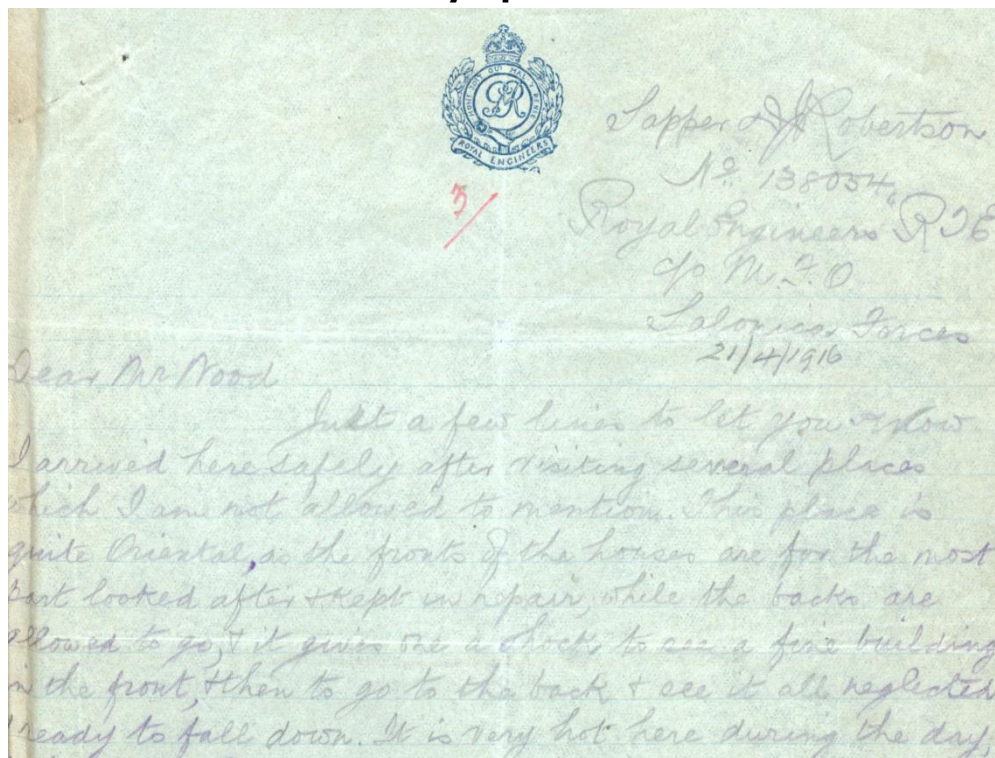 HONI SOIT QUI MAL Y PENSE
GR
ROYAL ENGINEERS
3/
Sapper J Robertson
No. 138054,
Royal Engineers R.T.E
c/o M.F.O
Salonica Forces
21/4/1916
Dear Mr Wood
Just a few lines to let you know
I arrived here safely after visiting several places
which I am not allowed to mention. This place is
quite Oriental, as the fronts of the houses are for the most
part looked after & kept in repair, while the backs are
allowed to go, & it gives one a shock to see a fine building
in the front, & then to go to the back & see it all neglected
& ready to fall down. It is very hot here during the day,